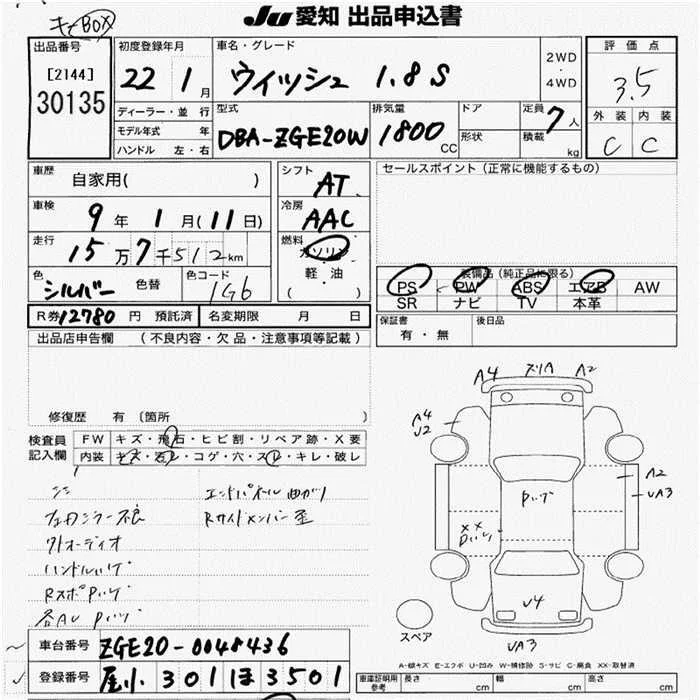 Ju 愛知 出品申込書
キャBOX
出品番号
[2144]
30135
初度登録年月
22 1月
車名・グレード
ウィッシュ 1.8S
2WD
・
4WD
評価点
3.5
外装 内装
C C
ディーラー・並行
モデル年式 年
ハンドル 左・右
型式
DBA-ZGE20W
排気量
1800 CC
ドア
形状
定員 7人
積載 kg
車歴
自家用( )
車検
9年 1月(11日)
走行
15万7千512km
色
シルバー 色替
色コード
1G6
シフト
AT
冷房
AAC
燃料
ガソリン
軽・油
( )
セールスポイント(正常に機能するもの)
装備品(純正品に限る)
PS PW ABS エアB AW
SR ナビ TV 本革
R券12780円 預託済 名変期限 月 日
保証書
有・無
後日品
出品店申告欄 (不良内容・欠品・注意事項等記載)
修復歴 有〔箇所 〕
検査員
記入欄
FW キズ・飛石・ヒビ割・リペア跡・X要
内装 キズ・汚レ・コゲ・穴・スレ・キレ・破レ
エンドパネル曲がり
フェンダミラー不良
Rサイドメンバー歪
外オーディオ
A4 A2
A4
J2
A2
UA3
XX
U4
UA3
スペア
車台番号 ZGE20-0048436
登録番号 尾小 301 ほ 3501
A-線キズ E-エクボ U-凹み W-補修跡 S-サビ C-腐食 XX-取替済
車庫証明用
参考
長さ cm 幅 cm 高さ cm